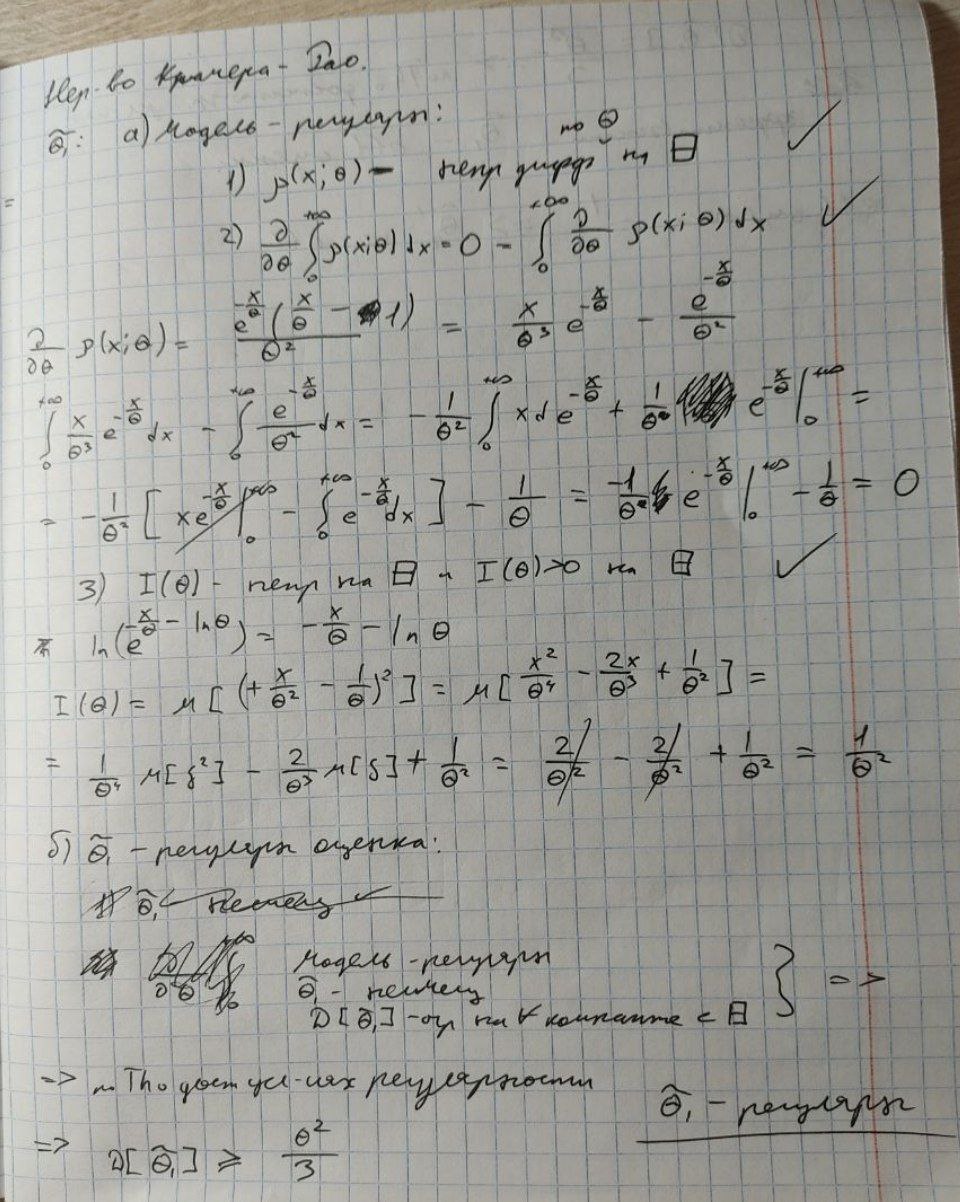 Нер-во Крамера-Рао.
θ̃₁: а) Модель - регулярн:
1) p(x; θ) - непр дифф по θ на Θ ✓
2) ∂/∂θ ∫₀^{+∞} p(x;θ) dx = 0 - ∫₀^{+∞} ∂/∂θ p(x; θ) dx ✓
=
∂/∂θ p(x; θ) = e^{-x/θ} (x/θ - 1) / θ² = x/θ³ e^{-x/θ} - e^{-x/θ}/θ²
∫₀^{+∞} x/θ³ e^{-x/θ} dx - ∫₀^{+∞} e^{-x/θ}/θ² dx = -1/θ² ∫₀^{+∞} x d e^{-x/θ} + 1/θ e^{-x/θ} |₀^{+∞} =
= -1/θ² [ x e^{-x/θ} |₀^{+∞} - ∫₀^{+∞} e^{-x/θ} dx ] - 1/θ = -1/θ e^{-x/θ} |₀^{+∞} - 1/θ = 0
3) I(θ) - непр на Θ и I(θ)>0 на Θ ✓
ln(e^{-x/θ - lnθ}) = -x/θ - ln θ
I(θ) = M[(+x/θ² - 1/θ)²] = M[x²/θ⁴ - 2x/θ³ + 1/θ²] =
= 1/θ⁴ M[ξ²] - 2/θ³ M[ξ] + 1/θ² = 2/θ² - 2/θ² + 1/θ² = 1/θ²
б) θ̃₁ - регулярн оценка:
Модель - регулярн
θ̃₁ - несмещ
D[θ̃₁] - огр на ∀ компакте ⊂ Θ } =>
=> по Th о дост усл-иях регулярности
θ̃₁ - регулярн
=> D[θ̃₁] ⩾ θ²/3